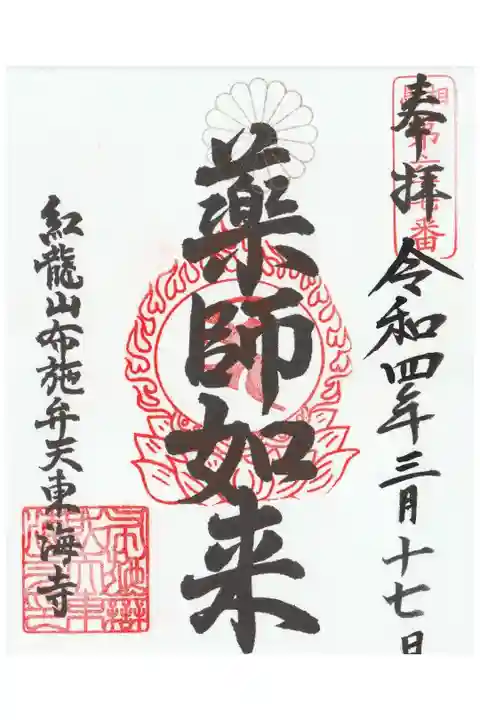 奉拝 令和四年三月十七日
薬師如来
紅龍山布施弁天東海寺